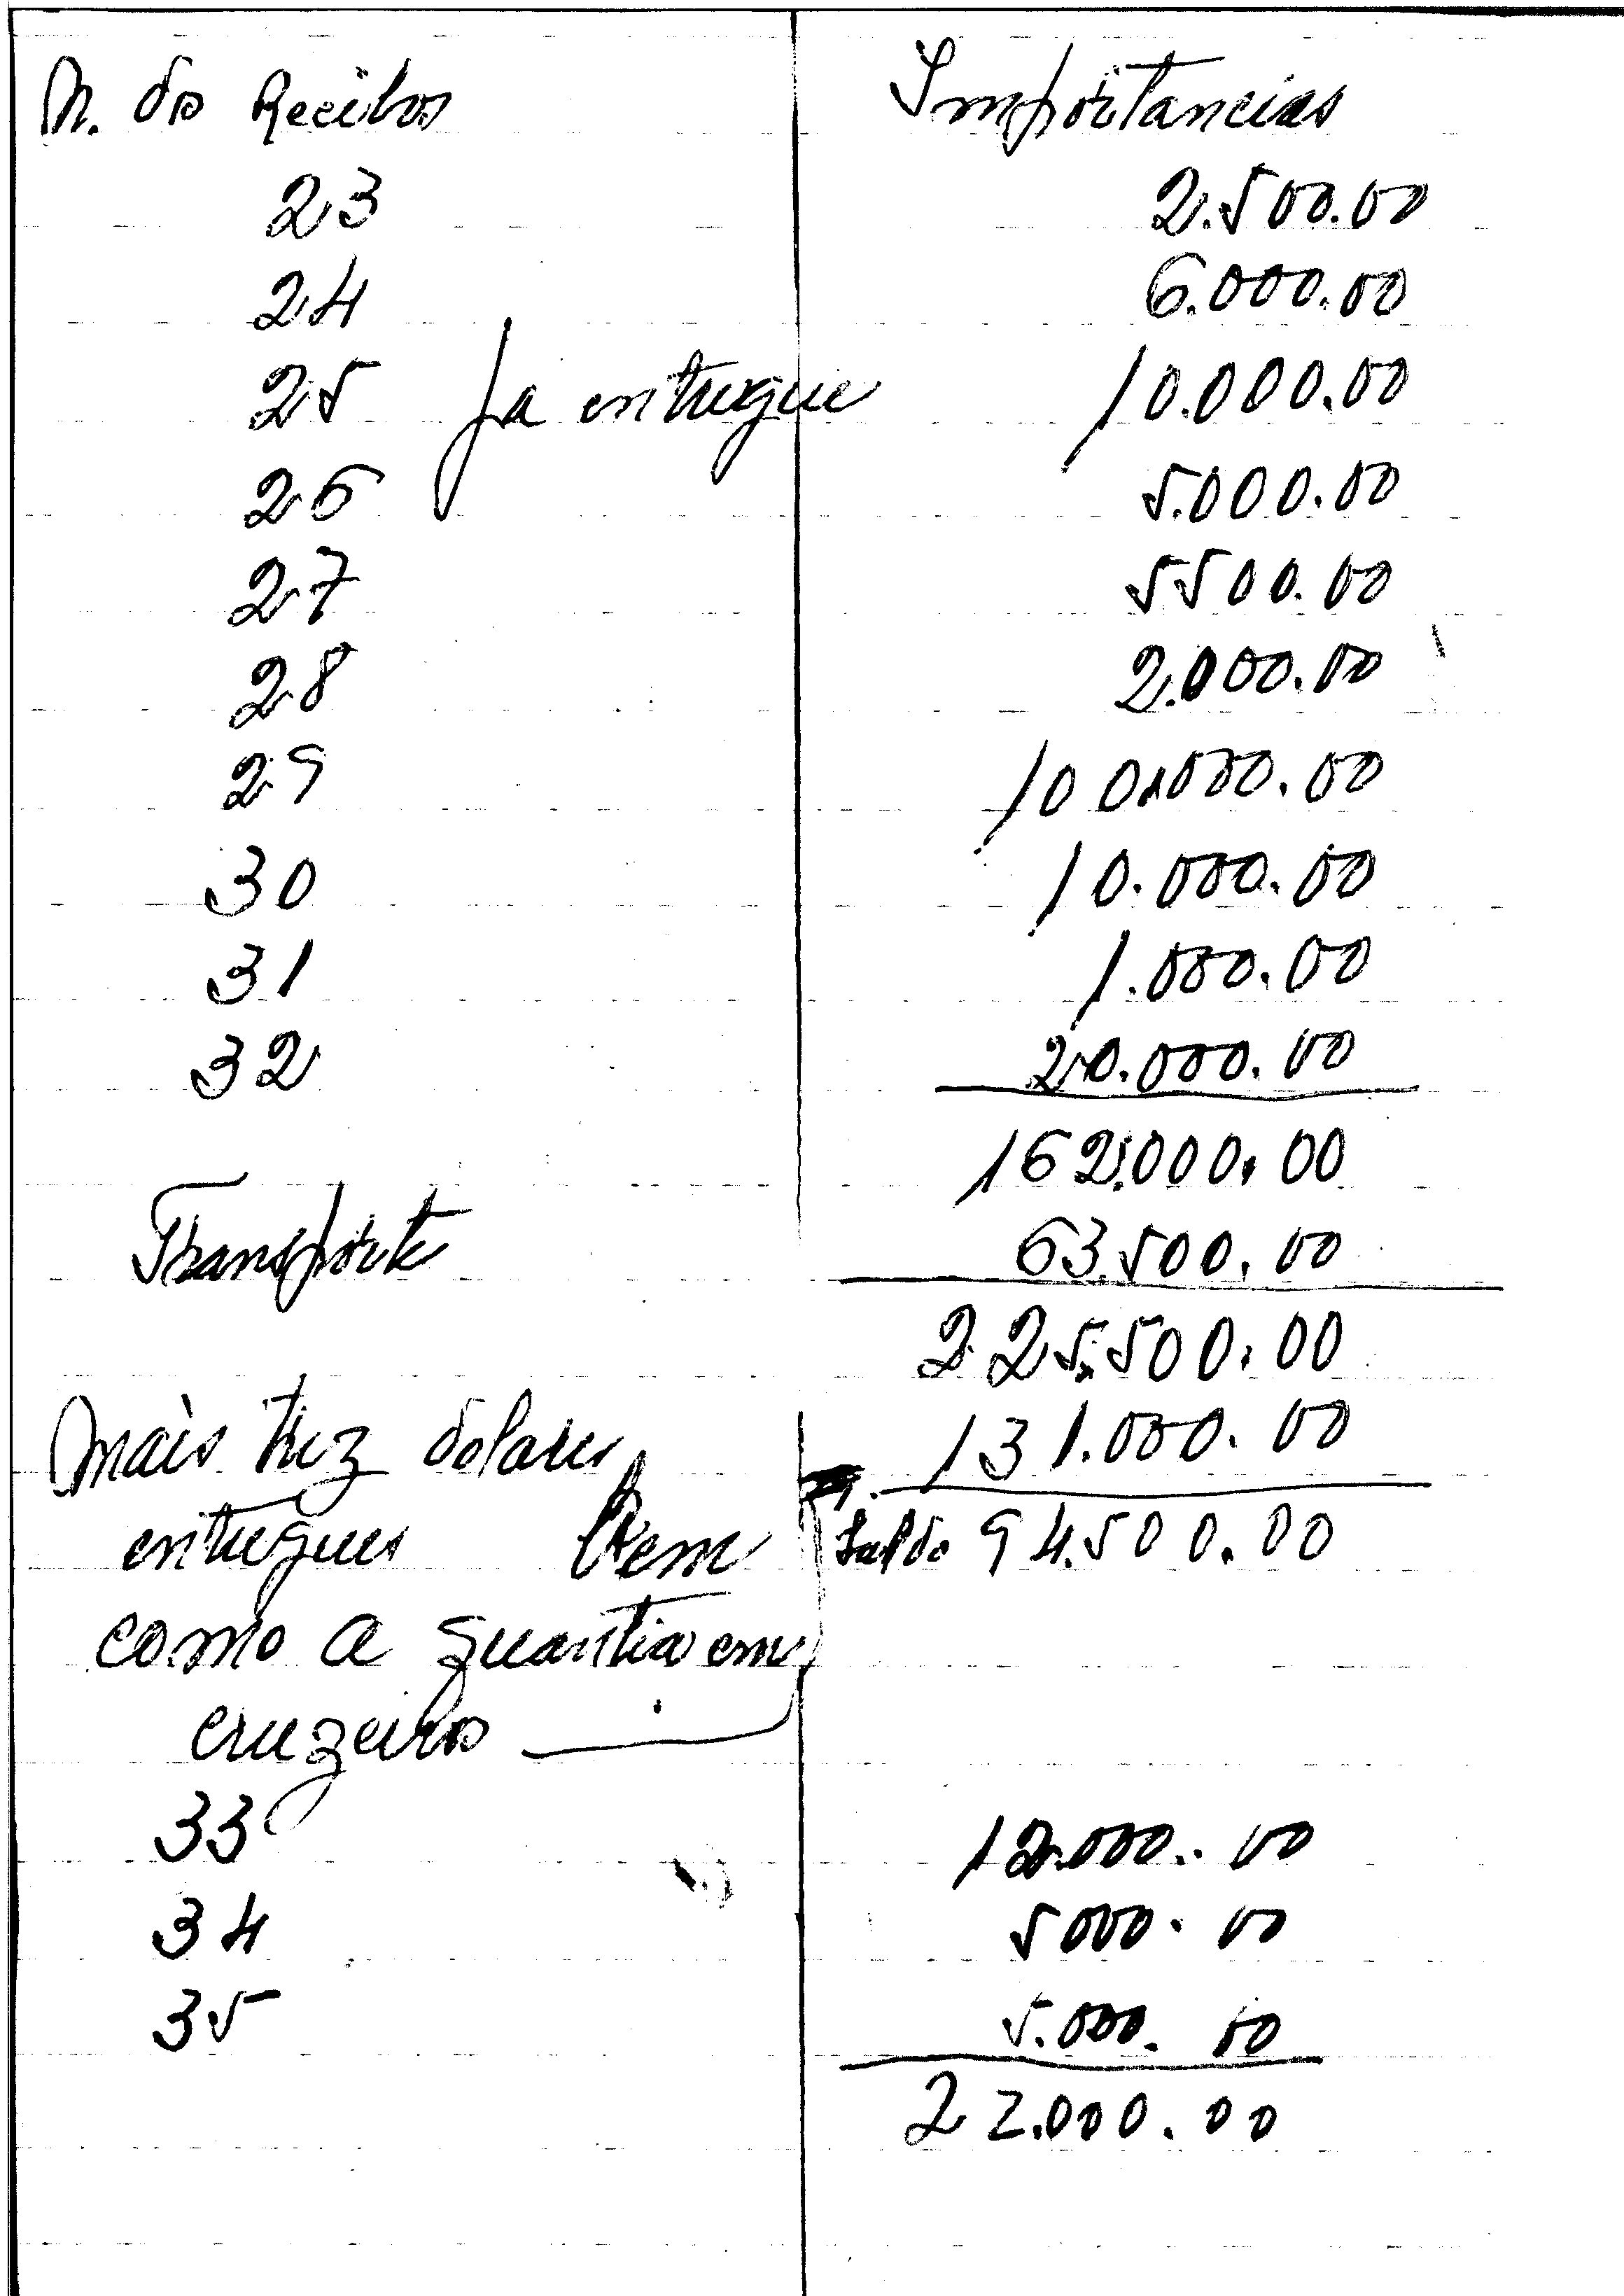 N. do Recibos Importancias
23 2.500.00
24 6.000.00
25 Ja entregue 10.000.00
26 5.000.00
27 5500.00
28 2.000.00
29 100.000.00
30 10.000.00
31 1.000.00
32 20.000.00
162.000.00
Transporte 63.500.00
225.500.00
Mais trez dolares 131.000.00
entregues Bem Saldo 94.500.00
como a quantia em
cruzeiros
33 12.000.00
34 5000.00
35 5.000.00
22.000.00